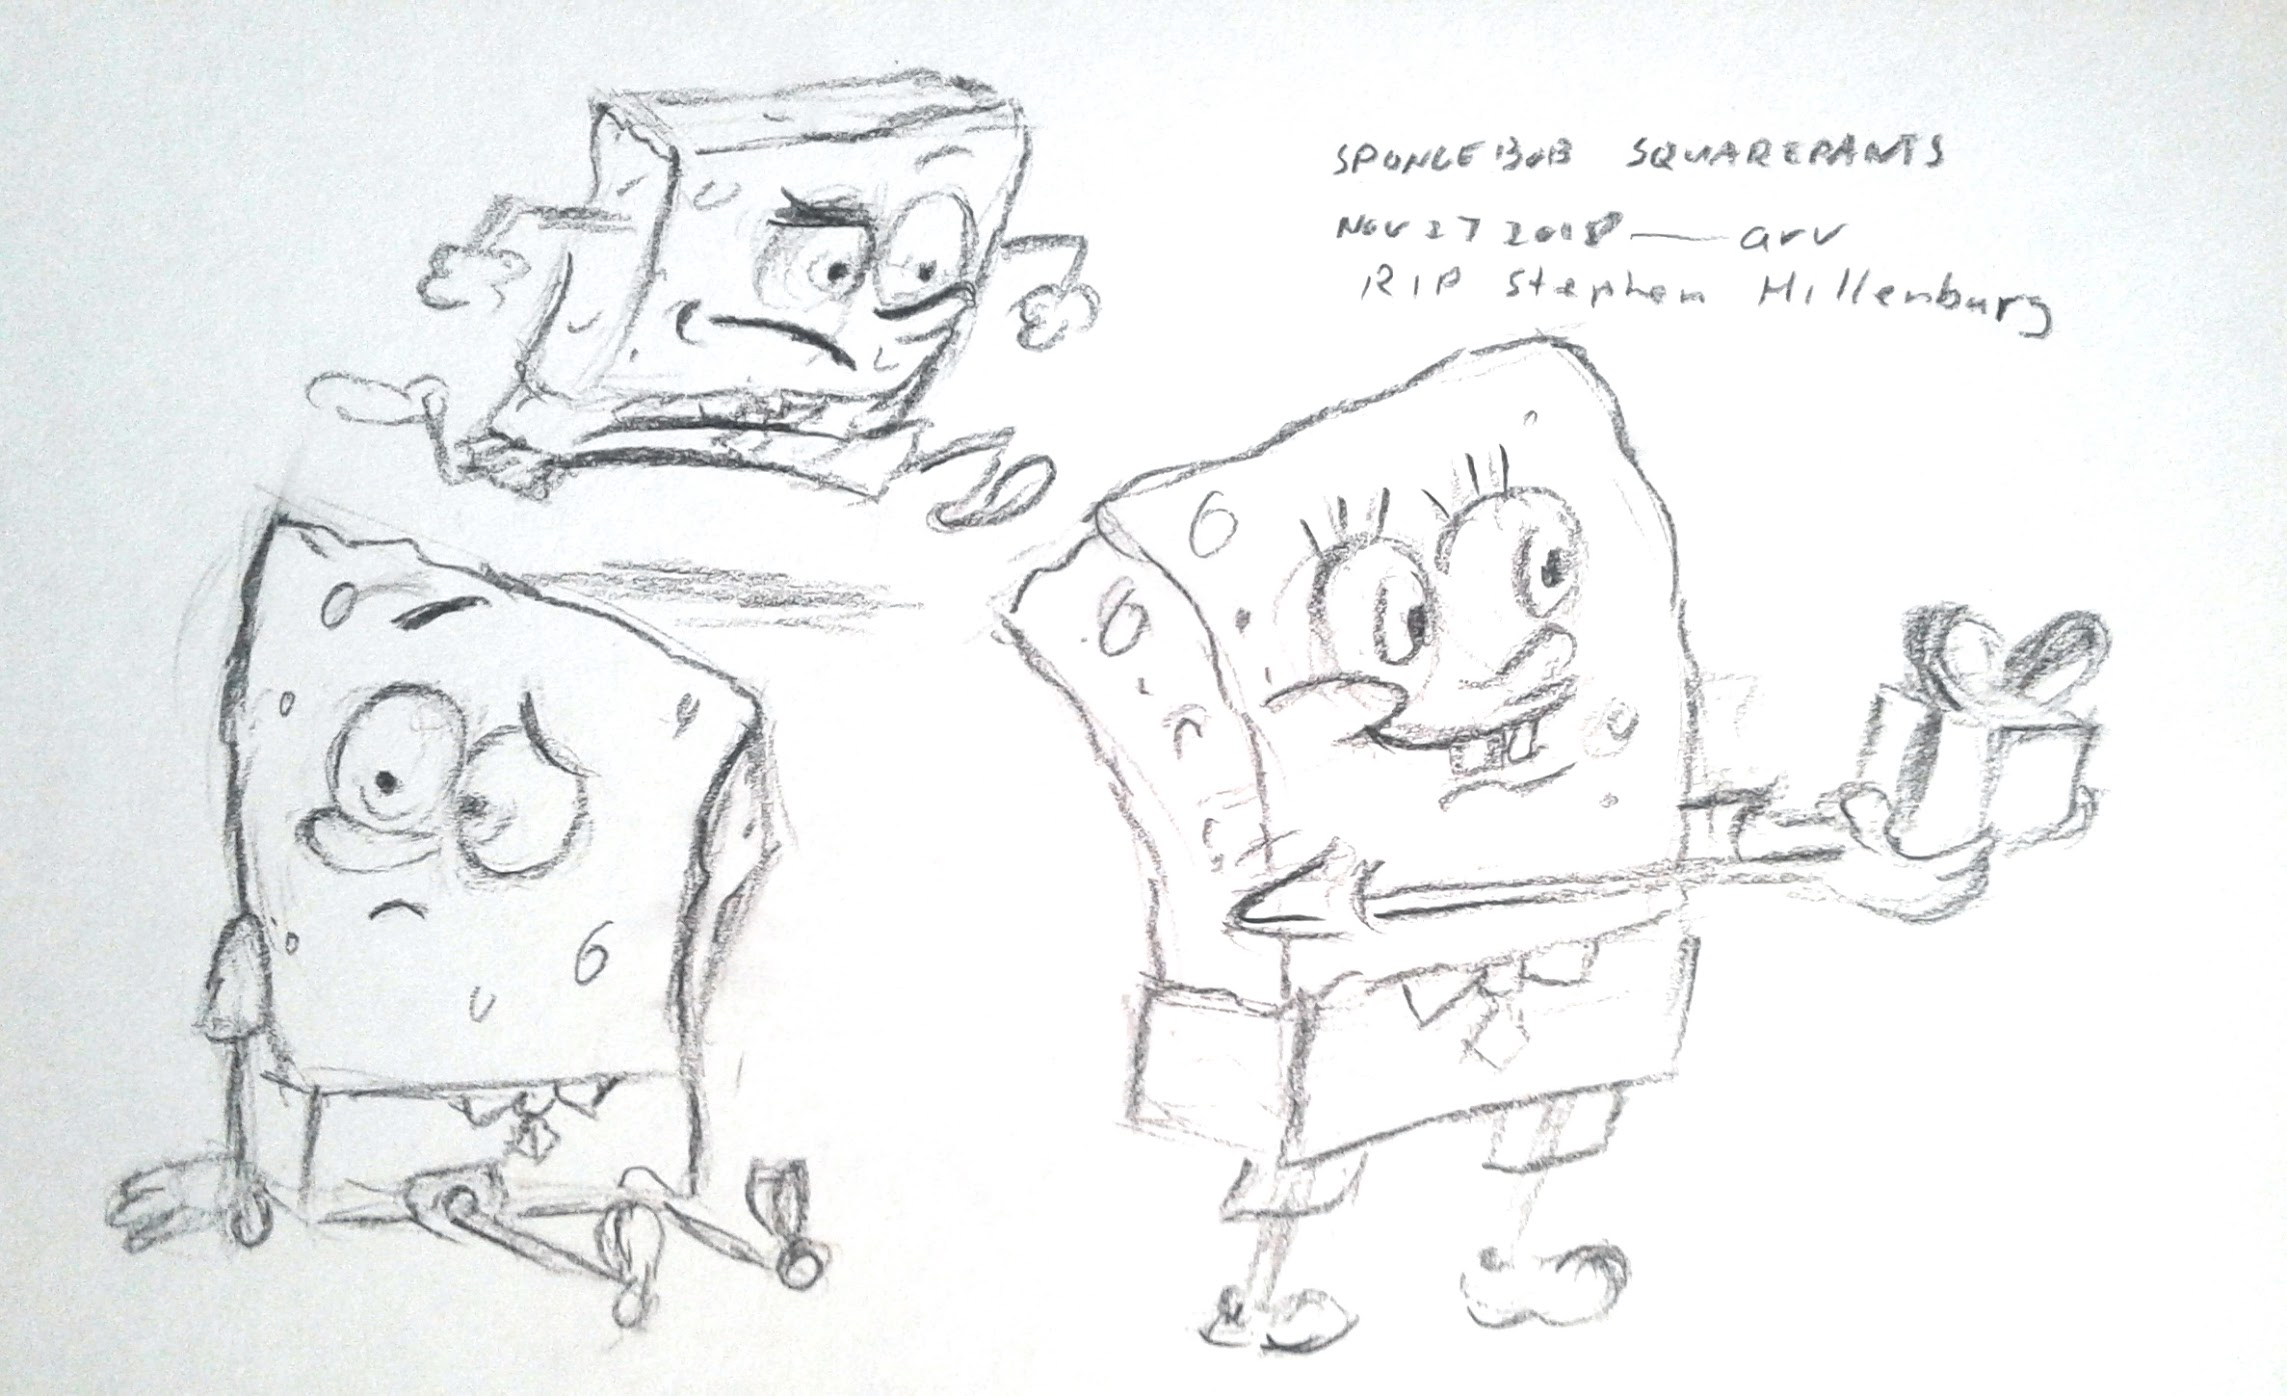 SPONGEBOB SQUAREPANTS
NOV 27 2018 — arv
RIP Stephen Hillenburg